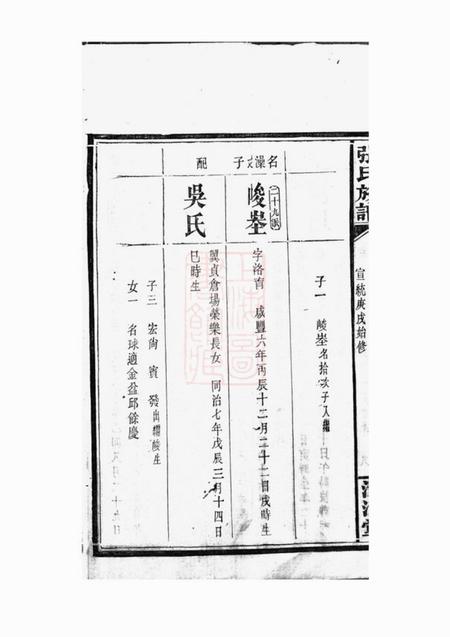 張氏族譜
宣統庚戌始修
清河堂
子一 峻壆名拾次子入繼
名澡次子
峻壆
二十九派
字洛甫 咸豐六年丙辰十二月二十二日戌時生
配
吳氏
翼貞倉場榮樂長女 同治七年戊辰三月十四日
巳時生
子三 宏陶 賓 發出繼峻生
女一 名球適金盆邱餘慶